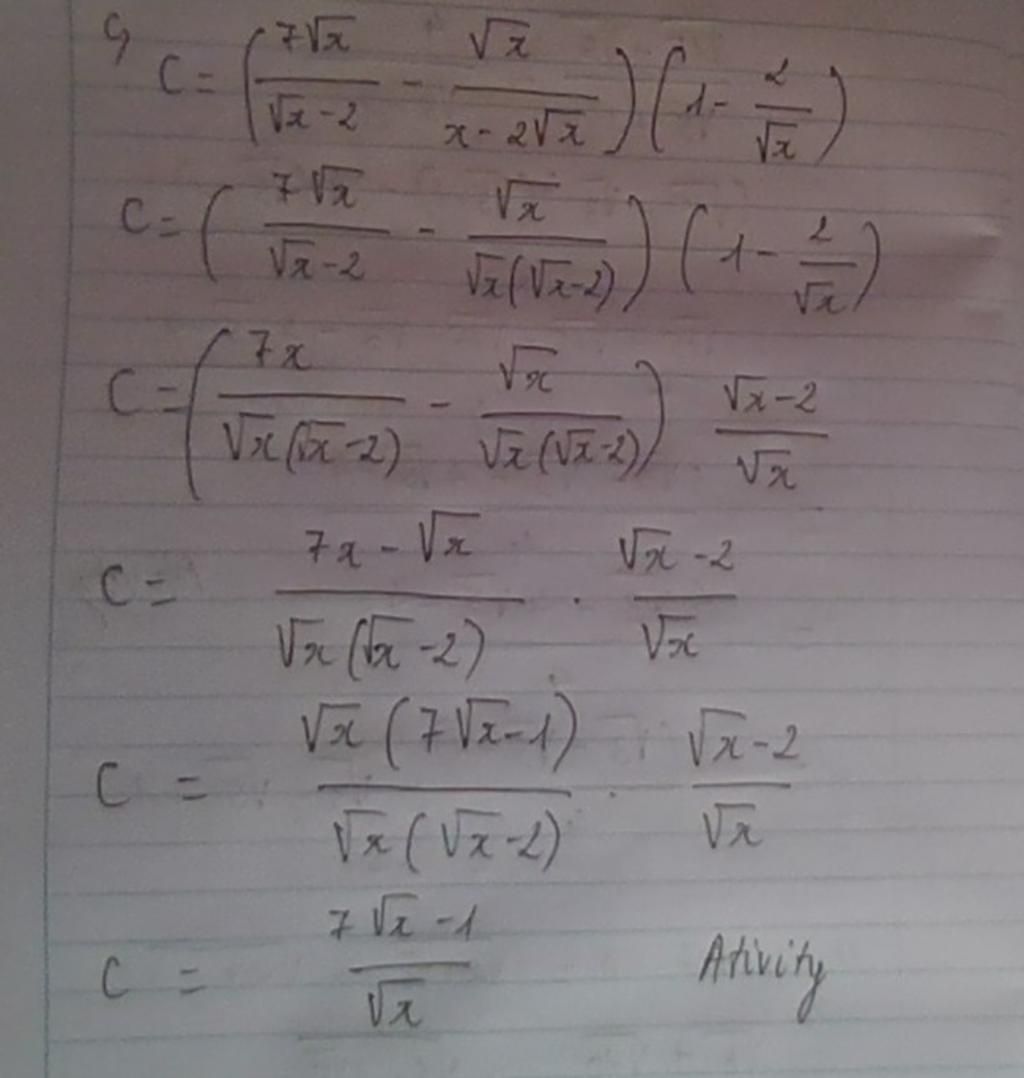 c, C = (7√x/(√x-2) - √x/(x-2√x)) (1 - 2/√x)
C = (7√x/(√x-2) - √x/(√x(√x-2))) (1 - 2/√x)
C = (7x/(√x(√x-2)) - √x/(√x(√x-2))) (√x-2)/√x
C = (7x-√x)/(√x(√x-2)) . (√x-2)/√x
C = √x(7√x-1)/(√x(√x-2)) . (√x-2)/√x
C = (7√x-1)/√x Ativity